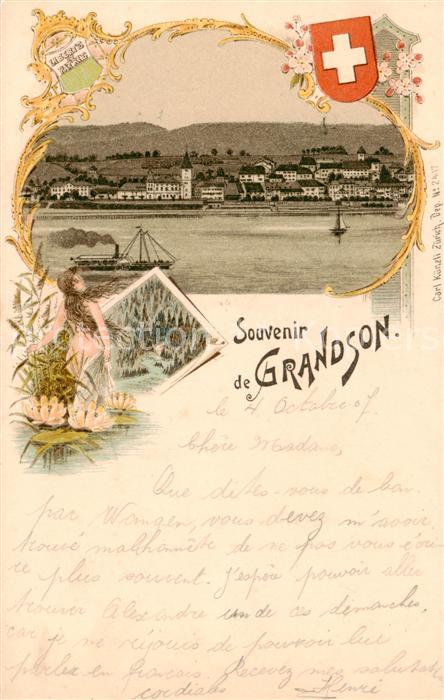 LIBERTÉ
ET
PATRIE
Carl Künzli Zürich, Dep. No 2417
Souvenir
de GRANDSON
le 4 Octobre 07.
Chère Madame,
Que dites-vous de bon
par Wangen, vous devez m'avoir
trouvé malhonnête de ne pas vous écri-
re plus souvent. J'espère pouvoir aller
trouver Alexandre un de ces dimanches,
car je me réjouis de pouvoir lui
parler en français. Recevez mes salutat.
cordiales Henri